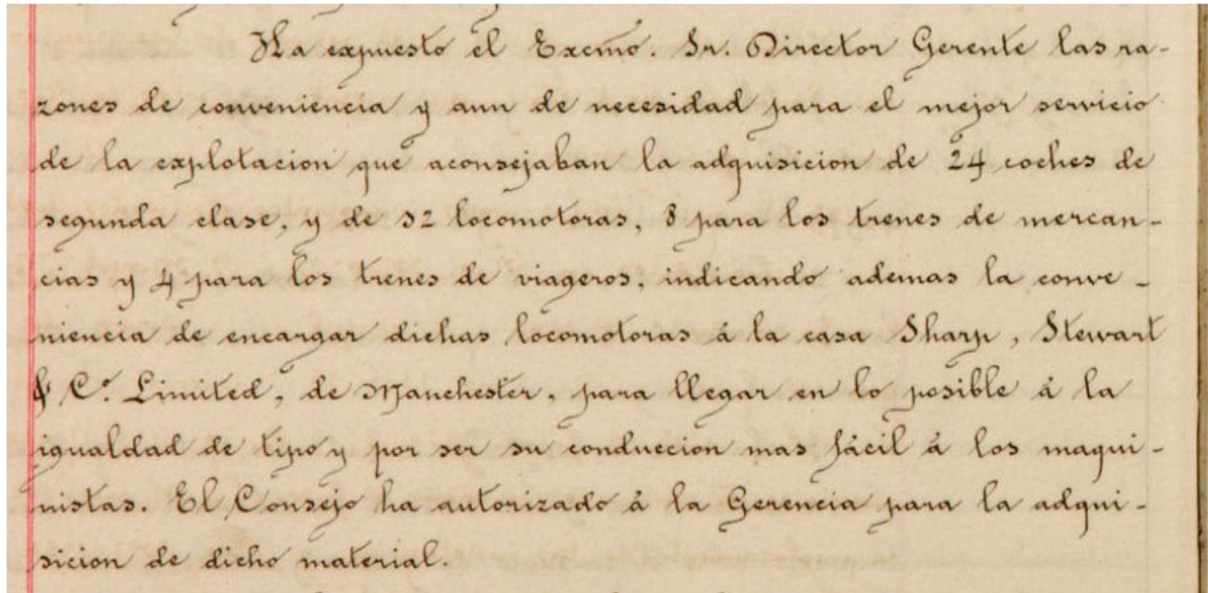 Ha expuesto el Excmo. Sr. Director Gerente las ra-
zones de conveniencia y aun de necesidad para el mejor servicio
de la explotacion que aconsejaban la adquisicion de 24 coches de
segunda clase, y de 12 locomotoras, 8 para los trenes de mercan-
cias y 4 para los trenes de viageros, indicando ademas la conve-
niencia de encargar dichas locomotoras á la casa Sharp, Stewart
& Cº Limited, de Manchester, para llegar en lo posible á la
igualdad de tipo y por ser su conduccion mas fácil á los maqui-
nistas. El Consejo ha autorizado á la Gerencia para la adqui-
sicion de dicho material.